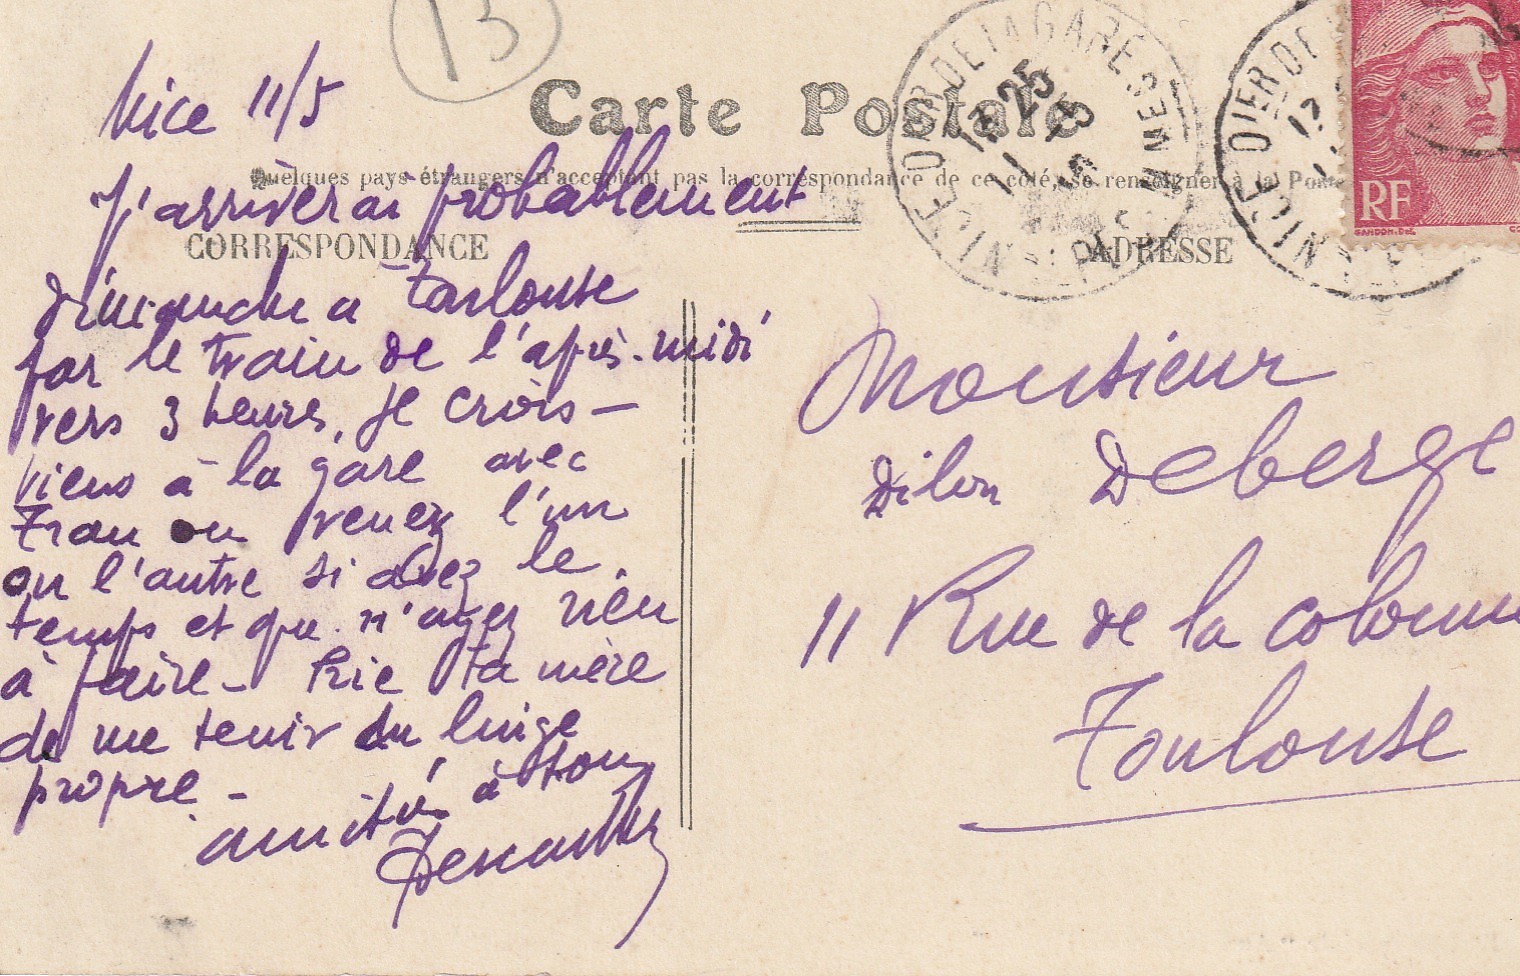 13
Nice 11/5
Carte Postale
Quelques pays étrangers n'acceptent pas la correspondance de ce côté, se renseigner à la Poste
J'arriverai probablement
CORRESPONDANCE
ADRESSE
dimanche à Toulouse
par le train de l'après-midi
vers 3 heures, je crois —
viens à la gare avec
ou venez l'un
ou l'autre si avez le
temps et que n'ayez rien
à faire - Prie ta mère
de me tenir du linge
propre -
amitié à tous
Monsieur
Dilon Deberge
11 Rue de la colonne
Toulouse
NICE GARE
13 25
11 - 5
RF
GANDON.DEL